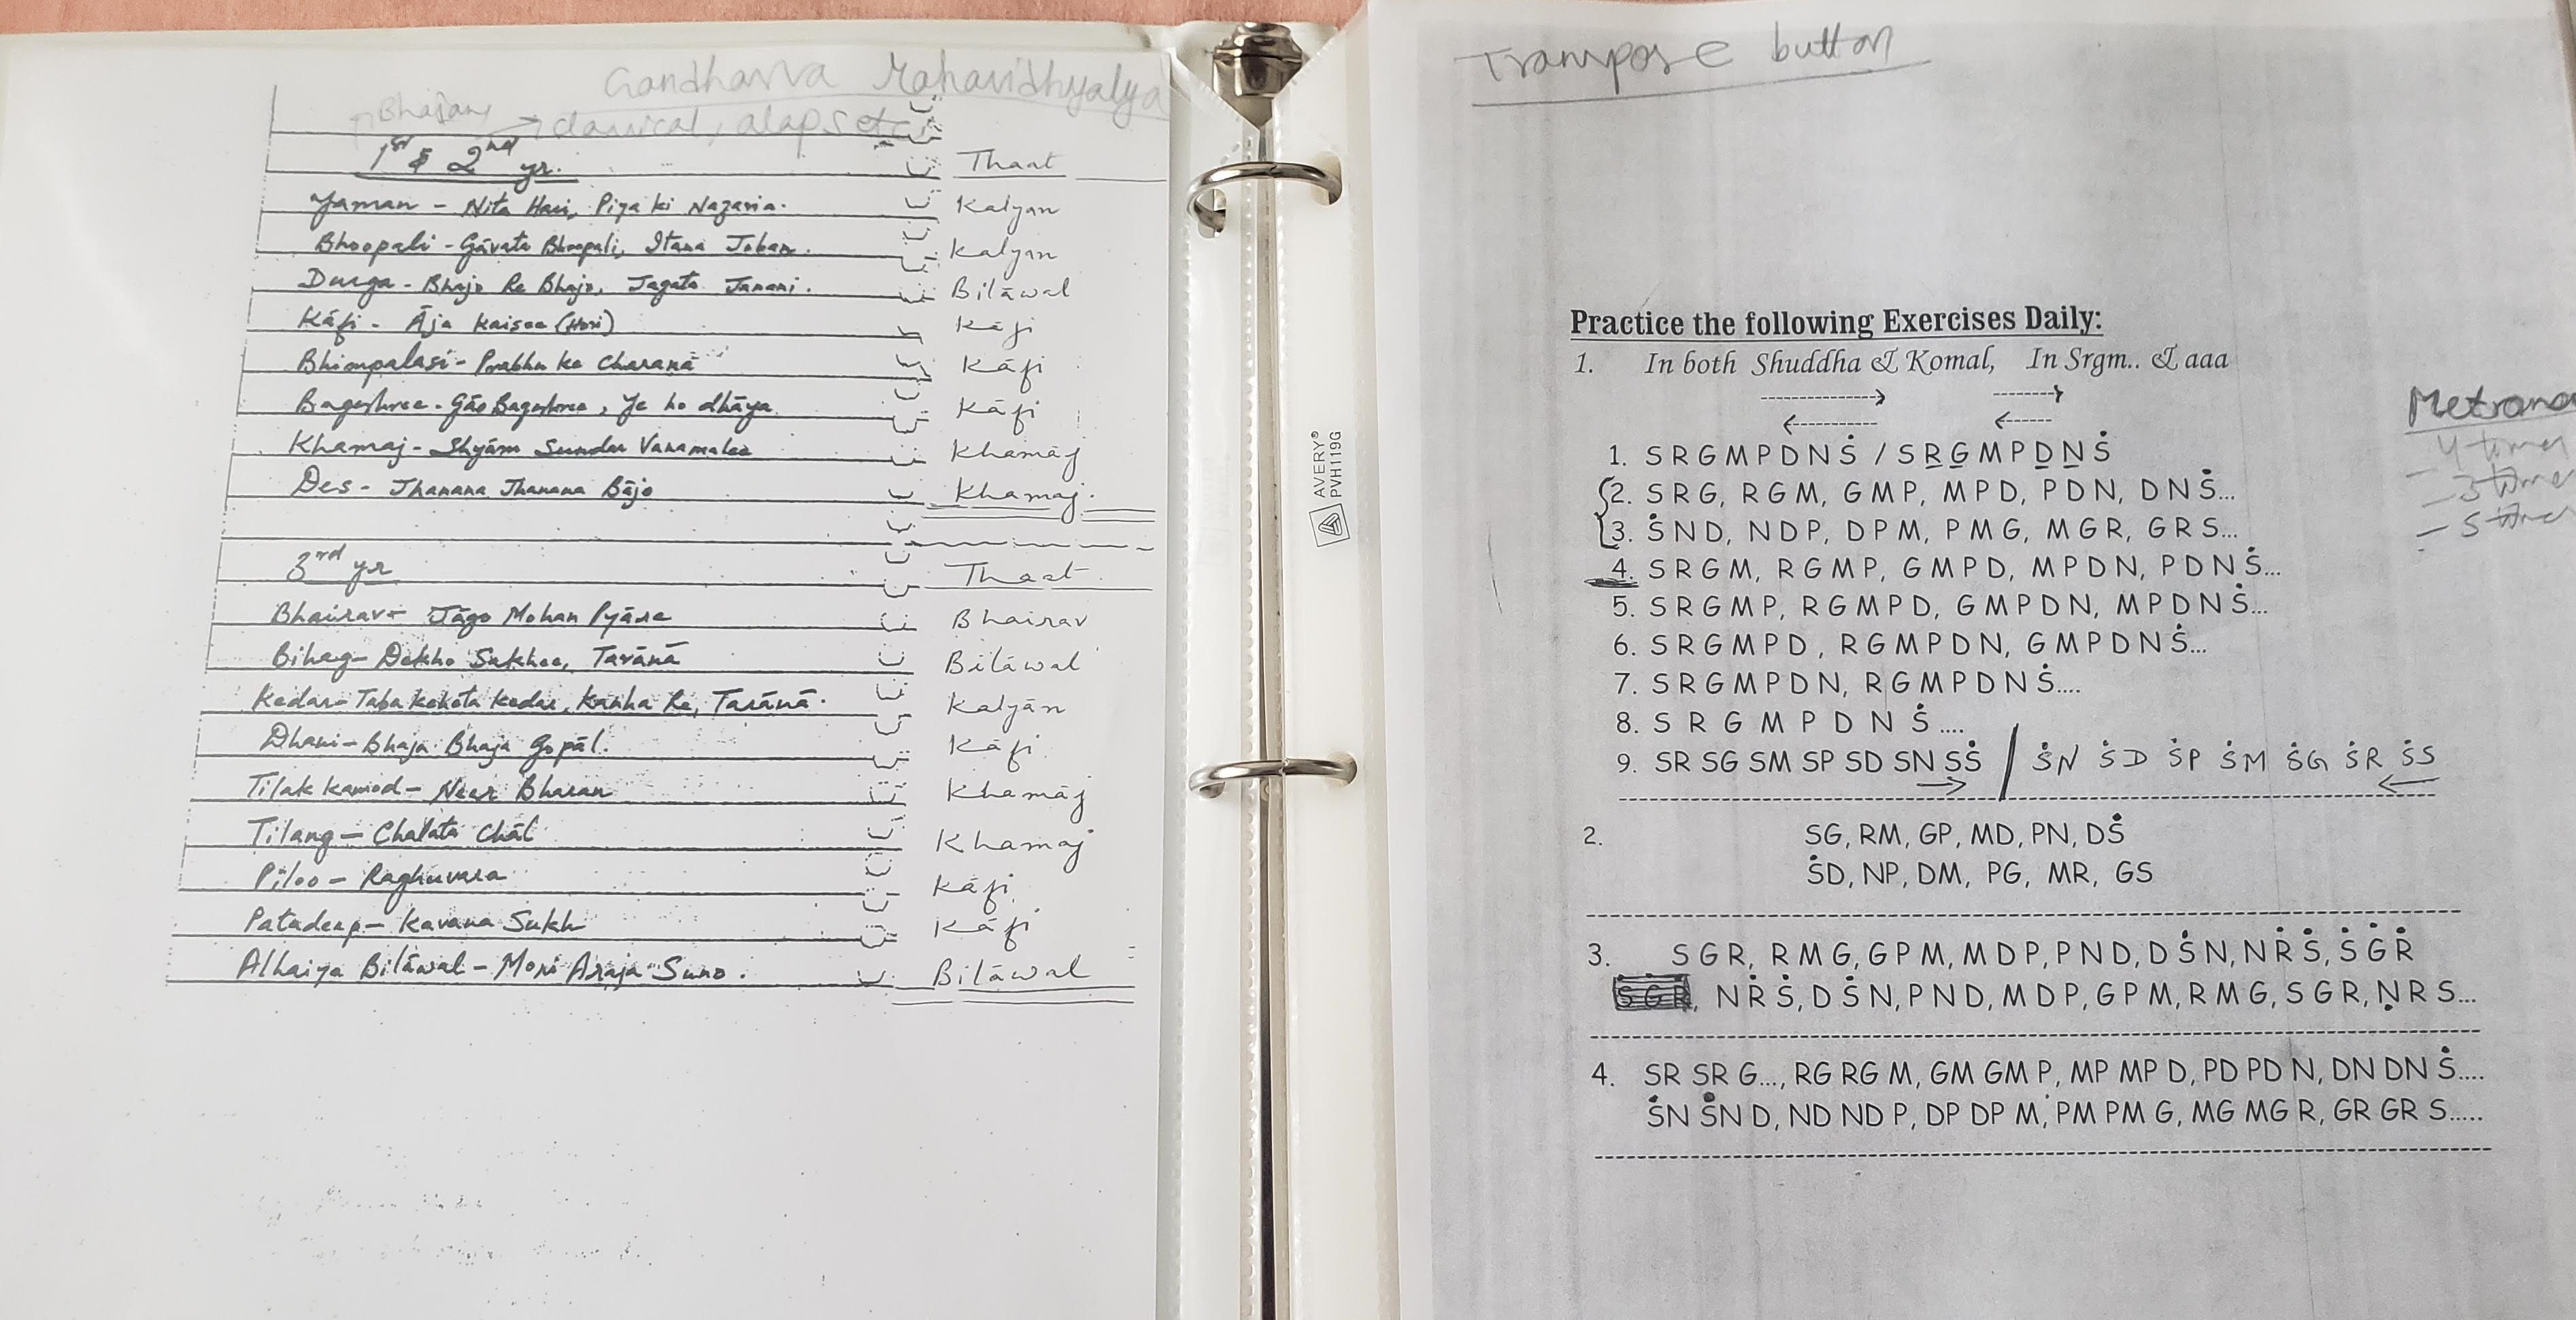 Gandharva Mahavidhyalya
Bhajans → classical, alaps etc
1st & 2nd yr. Thaat
Yaman - Nita Hari, Piya ki Nazaria. Kalyan
Bhoopali - Gāvata Bhoopali, Itana Joban. Kalyan
Durga - Bhajo Re Bhajo, Jagata Janani. Bilāwal
Kāfi - Āja Kaisee (Hori) Kāfi
Bhimpalasi - Prabhu ke Charanā Kāfi
Bageshree - Gāo Bageshree, Ye ho dhāya Kāfi
Khamaj - Shyām Sundar Vanamalee Khamāj
Des - Jhanana Jhanana Bājo Khamaj.
3rd yr Thaat
Bhairav - Jāgo Mohan Pyāre Bhairav
Bihag - Dekho Sakhee, Tarānā Bilāwal
Kedar - Taba Kahata Kedar, Kanha Re, Tarānā. Kalyān
Dhani - Bhaja Bhaja Gopāl. Kāfi
Tilak Kamod - Neer Bharan Khamāj
Tilang - Chalata Chāl Khamaj
Piloo - Raghuvara Kāfi
Patadeep - Kavana Sukh Kāfi
Alhaiya Bilāwal - Mori Araja Suno. Bilāwal
AVERY®
PVH119G
Transpose button
Practice the following Exercises Daily:
1. In both Shuddha & Komal, In Srgm.. & aaa
1. S R G M P D N Ṡ / S R̲ G̲ M P D̲ N̲ Ṡ
2. S R G, R G M, G M P, M P D, P D N, D N Ṡ...
3. Ṡ N D, N D P, D P M, P M G, M G R, G R S...
4. S R G M, R G M P, G M P D, M P D N, P D N Ṡ...
5. S R G M P, R G M P D, G M P D N, M P D N Ṡ...
6. S R G M P D, R G M P D N, G M P D N Ṡ...
7. S R G M P D N, R G M P D N Ṡ....
8. S R G M P D N Ṡ ....
9. SR SG SM SP SD SN SṠ / ṠN ṠD ṠP ṠM ṠG ṠR ṠS
Metrono
- 4 times
- 3 times
- 5 times
2. SG, RM, GP, MD, PN, DṠ
ṠD, NP, DM, PG, MR, GS
3. S G R, R M G, G P M, M D P, P N D, D Ṡ N, N Ṙ Ṡ, Ṡ Ġ Ṙ
S G R, N Ṙ Ṡ, D Ṡ N, P N D, M D P, G P M, R M G, S G R, Ṇ R S...
4. SR SR G..., RG RG M, GM GM P, MP MP D, PD PD N, DN DN Ṡ....
ṠN ṠN D, ND ND P, DP DP M, PM PM G, MG MG R, GR GR S.....